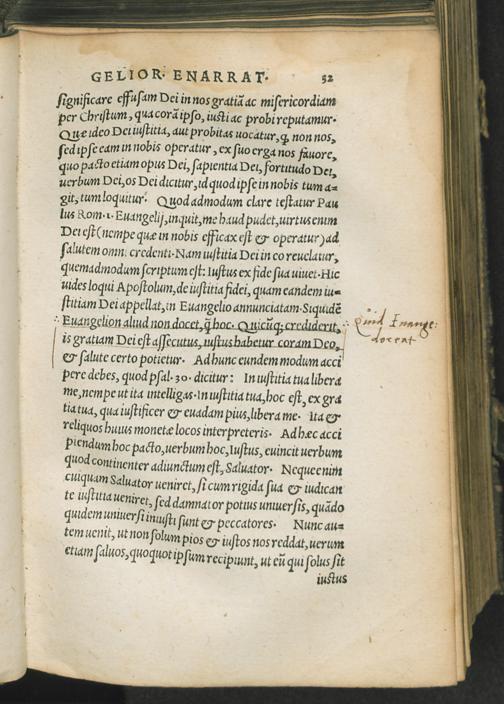 GELIOR· ENARRAT· 52
significare effusam Dei in nos gratiā ac misericordiam
per Christum, qua corā ipso, iusti ac probi reputamur·
Quæ ideo Dei iustitia, aut probitas uocatur, q, non nos,
sed ipse eam in nobis operatur, ex suo erga nos fauore,
quo pacto etiam opus Dei, sapientia Dei, fortitudo Dei,
uerbum Dei, os Dei dicitur, id quod ipse in nobis tum a=
git, tum loquitur· Quod admodum clare testatur Pau
lus Rom·1· Euangelij, inquit, me haud pudet, uirtus enim
Dei est (nempe quæ in nobis efficax est & operatur) ad
salutem omni credenti· Nam iustitia Dei in eo reuelatur,
quemadmodum scriptum est: Iustus ex fide sua uiuet· Hic
uides loqui Apostolum, de iustitia fidei, quam eandem iu=
stitiam Dei appellat, in Euangelio annunciatam· Siquidē
Euangelion aliud non docet, q̄ hoc· Quicūq; crediderit,
is gratiam Dei est assecutus, iustus habetur coram Deo,
& salute certo potietur· Ad hunc eundem modum acci
pere debes, quod psal·30· dicitur: In iustitia tua libera
me, nempe ut ita intelligas· In iustitia tua, hoc est, ex gra
tia tua, qua iustificer & euadam pius, libera me· Ita &
reliquos huius monetæ locos interpreteris· Ad hæc acci
piendum hoc pacto, uerbum hoc, Iustus, euincit uerbum
quod continenter adiunctum est, Saluator· Neque enim
cuiquam Saluator ueniret, si cum rigida sua & iudican
te iustitia ueniret, sed damnator potius uniuersis, quādo
quidem uniuersi iniusti sunt & peccatores· Nunc au=
tem uenit, ut non solum pios & iustos nos reddat, uerum
etiam saluos, quotquot ipsum recipiunt, ut eū qui solus sit
iustus
Quid Euange:
doceat